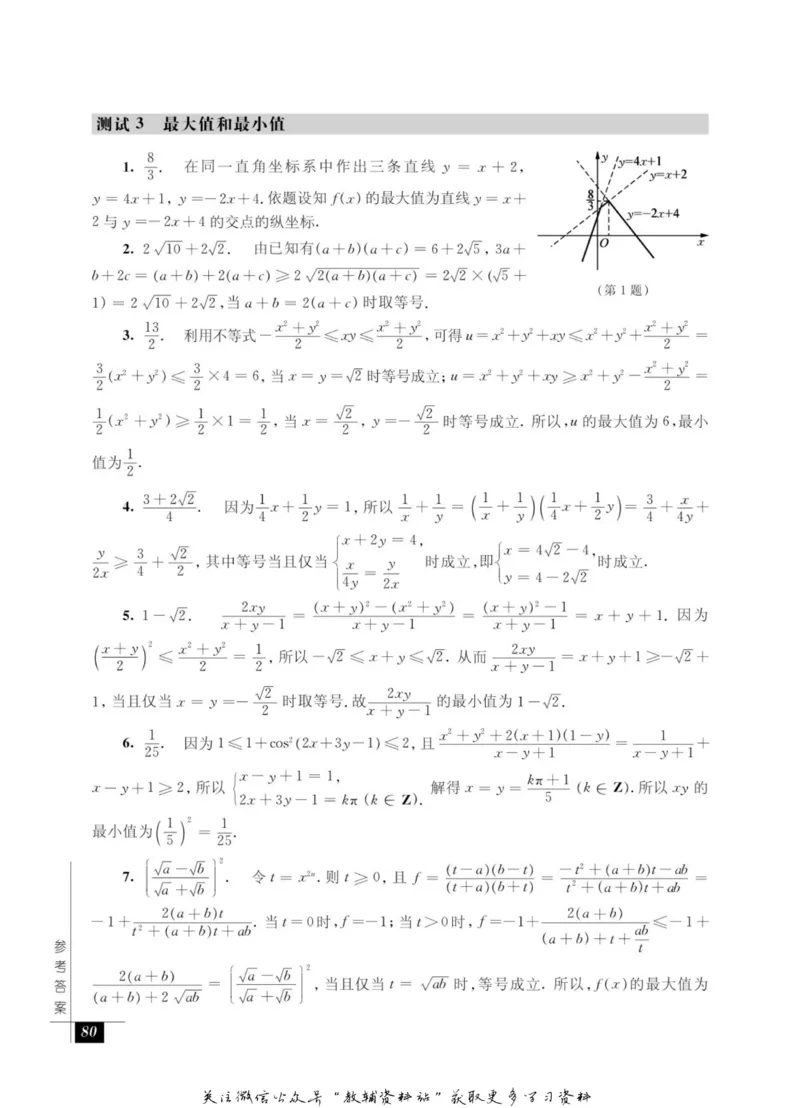 测试 3 最大值和最小值
y
y=4x+1
y=x+2
8/3
y=-2x+4
O
x
(第 1 题)
1. 8/3. 在同一直角坐标系中作出三条直线 y = x + 2,
y = 4x+1, y =-2x+4.依题设知 f(x) 的最大值为直线 y = x+
2 与 y =-2x+4 的交点的纵坐标.
2. 2√10+2√2. 由已知有(a+b)(a+c) = 6+2√5, 3a+
b+2c = (a+b)+2(a+c) ≥ 2√(2(a+b)(a+c)) = 2√2×(√5+
1) = 2√10+2√2,当 a+b = 2(a+c) 时取等号.
3. 13/2. 利用不等式 -(x²+y²)/2 ≤ xy ≤ (x²+y²)/2,可得 u = x²+y²+xy ≤ x²+y²+(x²+y²)/2 =
3/2(x²+y²) ≤ 3/2×4 = 6,当 x = y = √2 时等号成立; u = x²+y²+xy ≥ x²+y²-(x²+y²)/2 =
1/2(x²+y²) ≥ 1/2×1 = 1/2,当 x = √2/2, y =-√2/2 时等号成立. 所以,u 的最大值为 6,最小
值为 1/2.
4. (3+2√2)/4. 因为 1/4 x+1/2 y = 1,所以 1/x+1/y = (1/x+1/y)(1/4 x+1/2 y) = 3/4+x/(4y)+
y/(2x) ≥ 3/4+√2/2,其中等号当且仅当 {x+2y = 4, x/(4y) = y/(2x) 时成立,即 {x = 4√2-4, y = 4-2√2 时成立.
5. 1-√2. 2xy/(x+y-1) = ((x+y)²-(x²+y²))/(x+y-1) = ((x+y)²-1)/(x+y-1) = x+y+1. 因为
((x+y)/2)² ≤ (x²+y²)/2 = 1/2,所以 -√2 ≤ x+y ≤ √2. 从而 2xy/(x+y-1) = x+y+1 ≥ -√2+
1,当且仅当 x = y =-√2/2 时取等号.故 2xy/(x+y-1) 的最小值为 1-√2.
6. 1/25. 因为 1 ≤ 1+cos²(2x+3y-1) ≤ 2,且 (x²+y²+2(x+1)(1-y))/(x-y+1) = 1/(x-y+1)+
x-y+1 ≥ 2,所以 {x-y+1 = 1, 2x+3y-1 = kπ (k∈Z). 解得 x = y = (kπ+1)/5 (k∈Z).所以 xy 的
最小值为 (1/5)² = 1/25.
7. ((√a-√b)/(√a+√b))². 令 t = x²ⁿ.则 t ≥ 0,且 f = (t-a)(b-t)/((t+a)(b+t)) = (-t²+(a+b)t-ab)/(t²+(a+b)t+ab) =
-1+2(a+b)t/(t²+(a+b)t+ab). 当 t = 0 时,f =-1;当 t>0 时,f =-1+2(a+b)/((a+b)+t+ab/t) ≤ -1+
2(a+b)/((a+b)+2√ab) = ((√a-√b)/(√a+√b))²,当且仅当 t = √ab 时,等号成立. 所以,f(x)的最大值为
参考答案
80
关注微信公众号“教辅资料站”获取更多学习资料